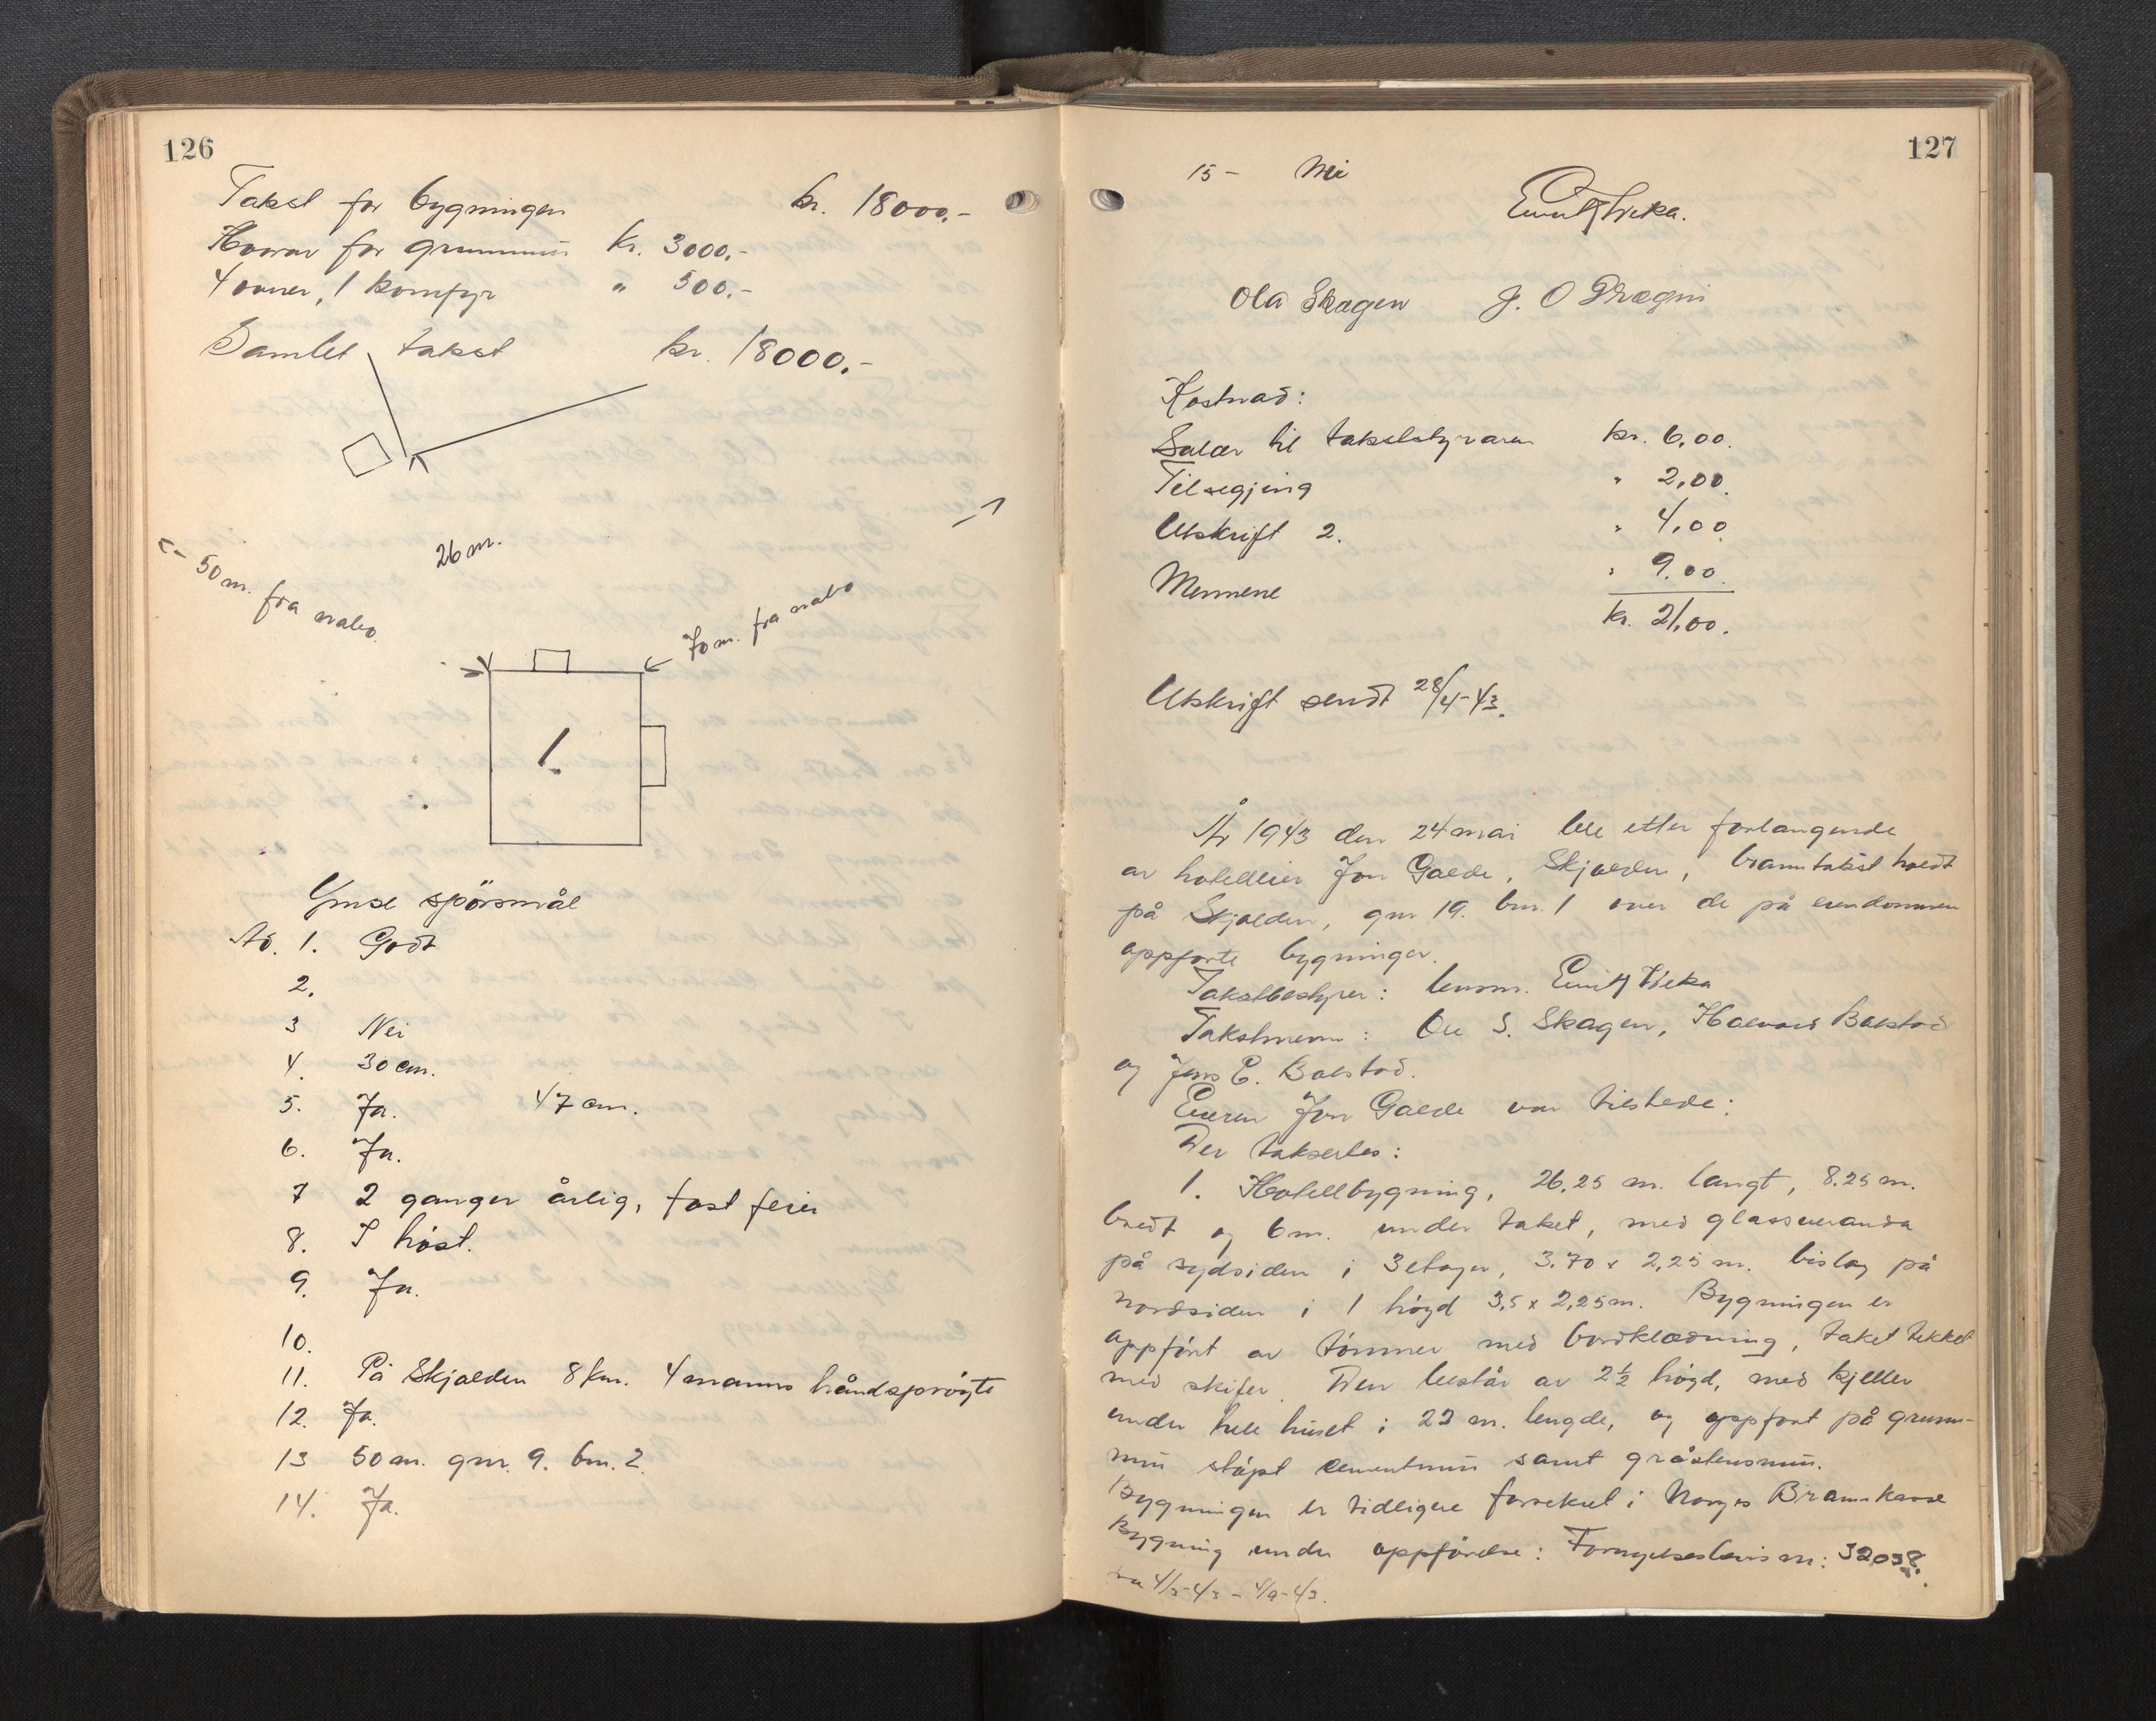 126
Takst for bygningen kr. 18000.-
Hvorav for grunnmur kr. 3000.-
4 ovner, 1 komfyr " 500.-
Samlet takst kr. 18000.-
26 m.
50 m. fra nabo
70 m. fra nabo
1.
Ymse spörsmål
Ad. 1. Godt
2.
3 Nei
4. 30 cm.
5. Ja. 47 cm.
6. Ja.
7 2 ganger årlig, fast feier
8. I höst.
9. Ja.
10.
11. På Skjolden 8 km. 4 manns håndspröyte
12. Ja.
13 50 m. gnr. 9. bnr. 2.
14. Ja.
127
15 - Nei
Ola Skagen J. O Drægni
Kostnad:
Salær til takststyraren kr. 6,00.
Tilsegjing " 2,00.
Utskrift 2. " 4,00.
Mennene " 9.00.
kr. 21,00.
Utskrift sendt 28/4-43.
År 1943 den 24 mai ble etter forlangende
av hotelleier Jon Galde, Skjolden, branntakst holdt
på Skjolden, gnr 19. bnr. 1 over de på eiendommen
oppförte bygninger.
Takstbestyrer: lensm.
Takstmenn: Ole S. Skagen, Halvard Bolstad
og Jens E. Bolstad.
Eieren Jon Galde var tilstede:
Der takserles:
1. Hotellbygning, 26,25 m. langt, 8.25 m.
bredt og 6 m. under taket, med glassveranda
på sydsiden i 3 etager, 3.70 x 2,25 m. bislag på
nordsiden i 1 höyd 3,5 x 2,25 m. Bygningen er
oppfört av tömmer med bordklædning, taket tekket
med skifer. Den består av 2½ höyd, med kjeller
under hele huset i 22 m. lengde, og oppfört på grunn-
mur stöpt cementmur samt gråstensmur.
Bygningen er tidligere forsikret i Norges Brannkasse
Bygning under oppförelse: Fornyelsesbevis nr: 32038.